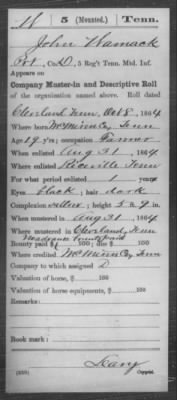 H 5 (Mounted.) Tenn.
John Hamack
Pvt, Co. D, 5 Reg't Tenn. Mtd. Inf.
Appears on
Company Muster-in and Descriptive Roll
of the organization named above. Roll dated
Cleveland Tenn Oct 8, 1864
Where born McMinn Co, Tenn
Age 19 y'rs; occupation Farmer
When enlisted Aug 31, 1864
Where enlisted Riceville Tenn
For what period enlisted 1 years
Eyes black; hair dark
Complexion sallow; height 5 ft. 9 in.
When mustered in Aug 31, 1864
Where mustered in Cleveland, Tenn
Bounty paid $ 100; due $ 100
Where credited McMinn Co, Tenn
Company to which assigned D
Valuation of horse, $ 100
Valuation of horse equipments, $ 100
Remarks:
Book mark:
Copyist.